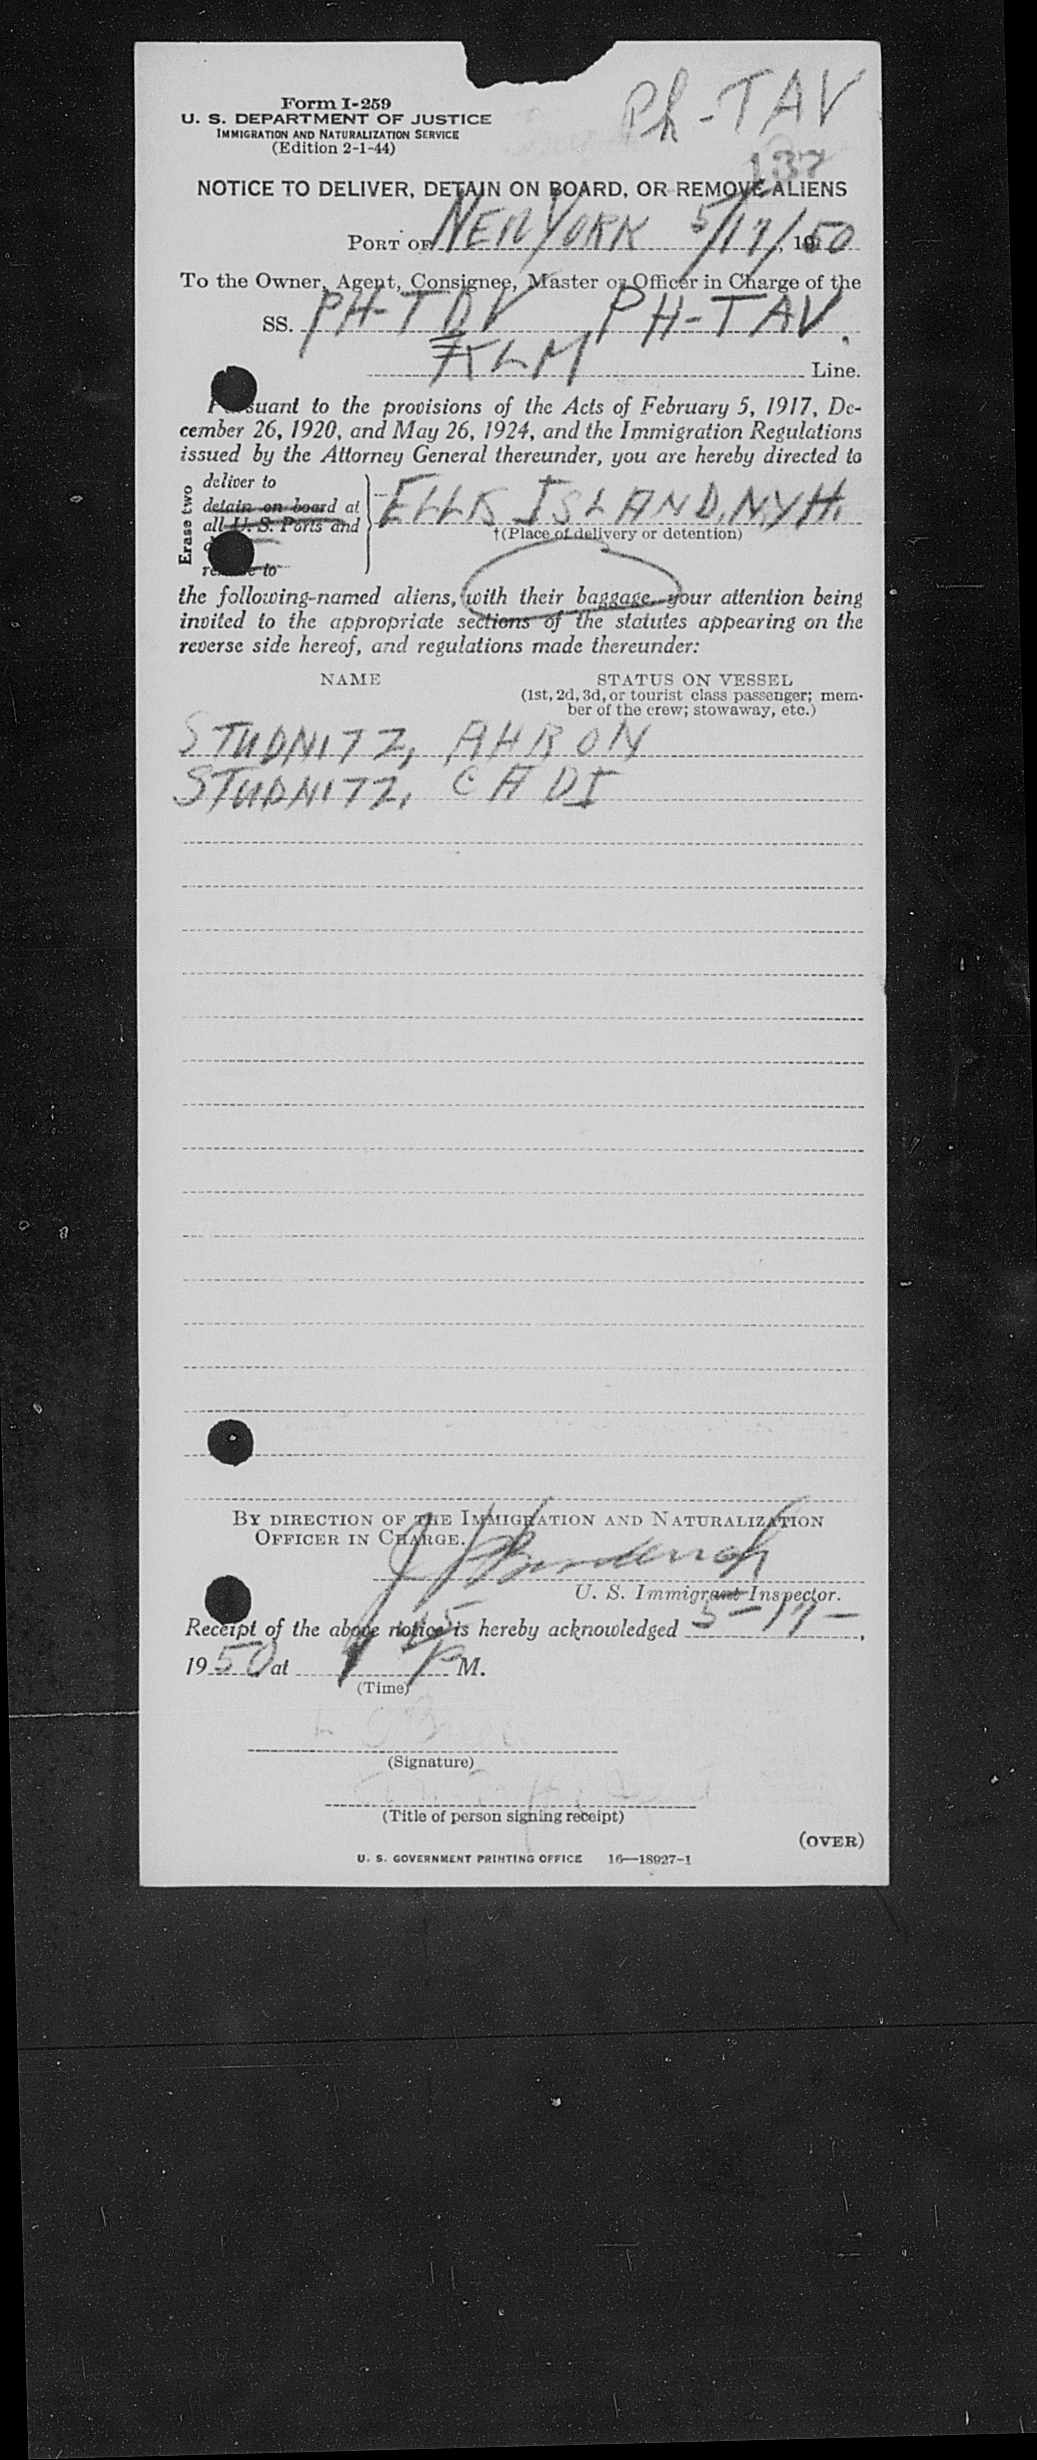 Form I-259
U. S. DEPARTMENT OF JUSTICE
IMMIGRATION AND NATURALIZATION SERVICE
(Edition 2-1-44)
Ph-TAV
137
NOTICE TO DELIVER, DETAIN ON BOARD, OR REMOVE ALIENS
PORT OF NEW YORK 5/17/, 1950
To the Owner, Agent, Consignee, Master or Officer in Charge of the
SS. PH-TDV PH-TAV.
KLM Line.
Pursuant to the provisions of the Acts of February 5, 1917, De-
cember 26, 1920, and May 26, 1924, and the Immigration Regulations
issued by the Attorney General thereunder, you are hereby directed to
Erase two
deliver to
detain on board at
all U. S. Ports and
re to
ELLIS ISLAND, N.Y.H.
†(Place of delivery or detention)
the following-named aliens, with their baggage, your attention being
invited to the appropriate sections of the statutes appearing on the
reverse side hereof, and regulations made thereunder:
NAME STATUS ON VESSEL
(1st, 2d, 3d, or tourist class passenger; mem-
ber of the crew; stowaway, etc.)
STUDNITZ, AHRON
STUDNITZ, CHDI
BY DIRECTION OF THE IMMIGRATION AND NATURALIZATION
OFFICER IN CHARGE.
U. S. Immigrant Inspector.
Receipt of the above notice is hereby acknowledged 5-17-,
1950 at 45 P M.
(Time)
(Signature)
(Title of person signing receipt)
(OVER)
U. S. GOVERNMENT PRINTING OFFICE 16—18927-1